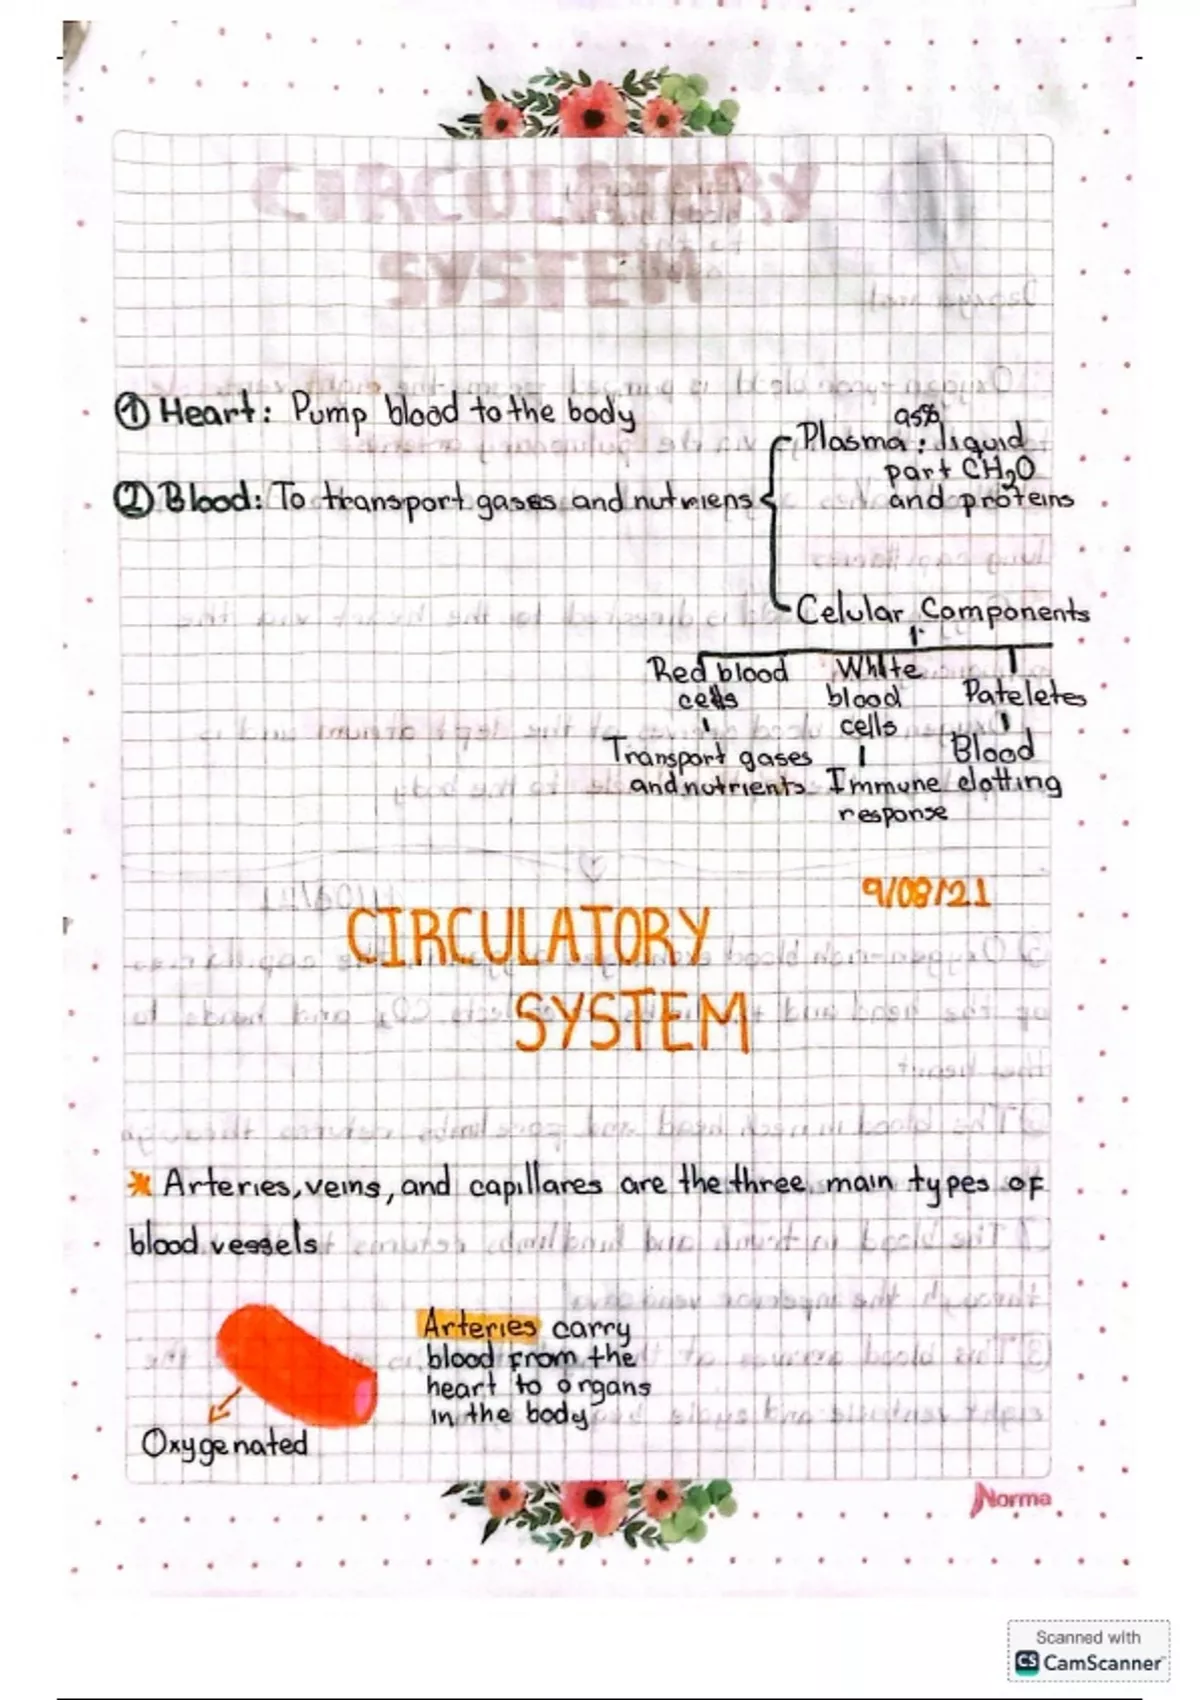 CIRCULATORY
SYSTEM
① Heart: Pump blood to the body
② Blood: To transport gases and nutriens
95%
Plasma: liquid
part CH₂O
and proteins
Celular Components
Red blood
cells
Transport gases
and nutrients
White
blood
cells
Immune
response
Pateletes
Blood
clotting
9/08/21
CIRCULATORY
SYSTEM
* Arteries, veins, and capillares are the three main types of
blood vessels
Arteries carry
blood from the
heart to organs
in the body
Oxygenated
Norma
Scanned with
CS CamScanner